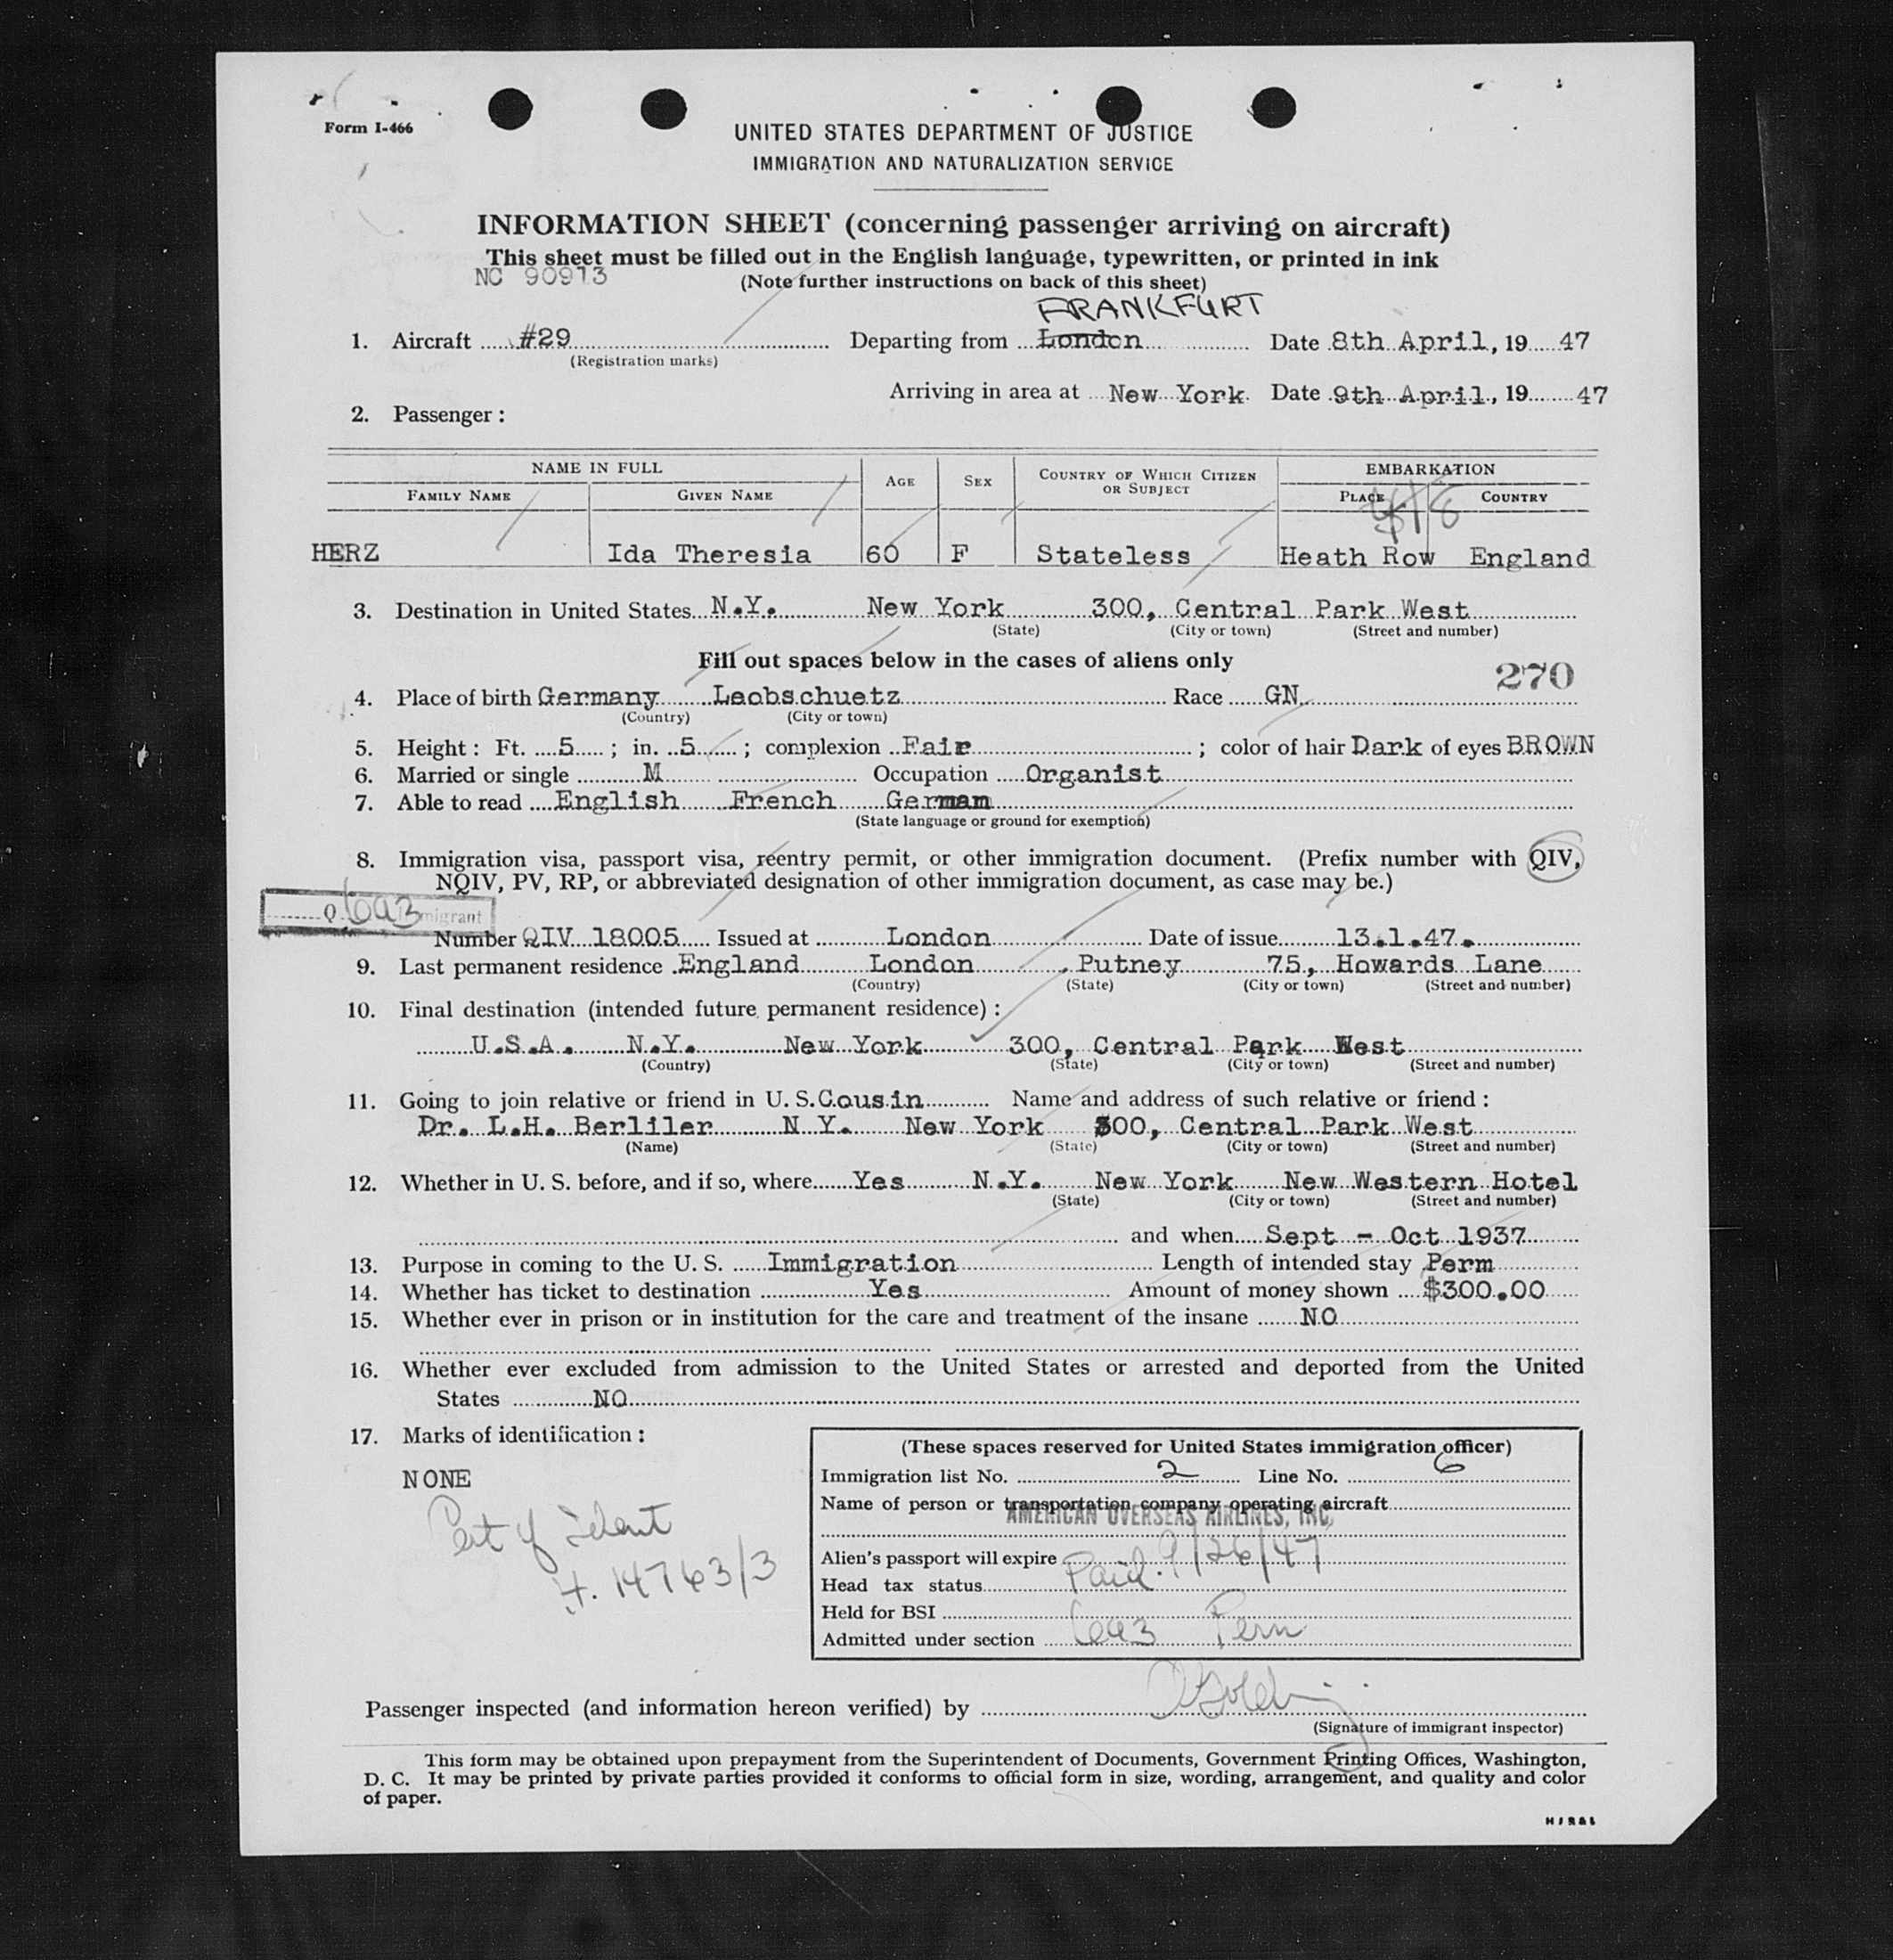 Form I-466
UNITED STATES DEPARTMENT OF JUSTICE
IMMIGRATION AND NATURALIZATION SERVICE
INFORMATION SHEET (concerning passenger arriving on aircraft)
This sheet must be filled out in the English language, typewritten, or printed in ink
NC 90913
(Note further instructions on back of this sheet)
FRANKFURT
1. Aircraft #29 Departing from London Date 8th April, 19 47
(Registration marks)
Arriving in area at New York Date 9th April, 19 47
2. Passenger:
NAME IN FULL AGE SEX COUNTRY OF WHICH CITIZEN OR SUBJECT EMBARKATION
FAMILY NAME GIVEN NAME PLACE COUNTRY
HERZ Ida Theresia 60 F Stateless Heath Row England
3. Destination in United States N.Y. New York 300, Central Park West
(State) (City or town) (Street and number)
Fill out spaces below in the cases of aliens only
270
4. Place of birth Germany Leobschuetz Race GN
(Country) (City or town)
5. Height: Ft. 5; in. 5; complexion Fair; color of hair Dark of eyes BROWN
6. Married or single M Occupation Organist
7. Able to read English French German
(State language or ground for exemption)
8. Immigration visa, passport visa, reentry permit, or other immigration document. (Prefix number with QIV,
NQIV, PV, RP, or abbreviated designation of other immigration document, as case may be.)
Q 6a3 migrant
Number QIV 18005 Issued at London Date of issue 13.1.47.
9. Last permanent residence England London, Putney 75, Howards Lane
(Country) (State) (City or town) (Street and number)
10. Final destination (intended future permanent residence):
U.S.A. N.Y. New York 300, Central Park West
(Country) (State) (City or town) (Street and number)
11. Going to join relative or friend in U. S. Cousin Name and address of such relative or friend:
Dr. L.H. Berliler N Y. New York 300, Central Park West
(Name) (State) (City or town) (Street and number)
12. Whether in U. S. before, and if so, where Yes N.Y. New York New Western Hotel
(State) (City or town) (Street and number)
and when Sept - Oct 1937
13. Purpose in coming to the U. S. Immigration Length of intended stay Perm
14. Whether has ticket to destination Yes Amount of money shown $300.00
15. Whether ever in prison or in institution for the care and treatment of the insane NO
16. Whether ever excluded from admission to the United States or arrested and deported from the United
States NO
17. Marks of identification:
NONE
Cert of Ident
H. 14763/3
(These spaces reserved for United States immigration officer)
Immigration list No. 2 Line No. 6
Name of person or transportation company operating aircraft
AMERICAN OVERSEAS AIRLINES, INC.
Alien's passport will expire 9/26/47
Head tax status Paid.
Held for BSI
Admitted under section 6a3 Perm
Passenger inspected (and information hereon verified) by
(Signature of immigrant inspector)
This form may be obtained upon prepayment from the Superintendent of Documents, Government Printing Offices, Washington,
D. C. It may be printed by private parties provided it conforms to official form in size, wording, arrangement, and quality and color
of paper.